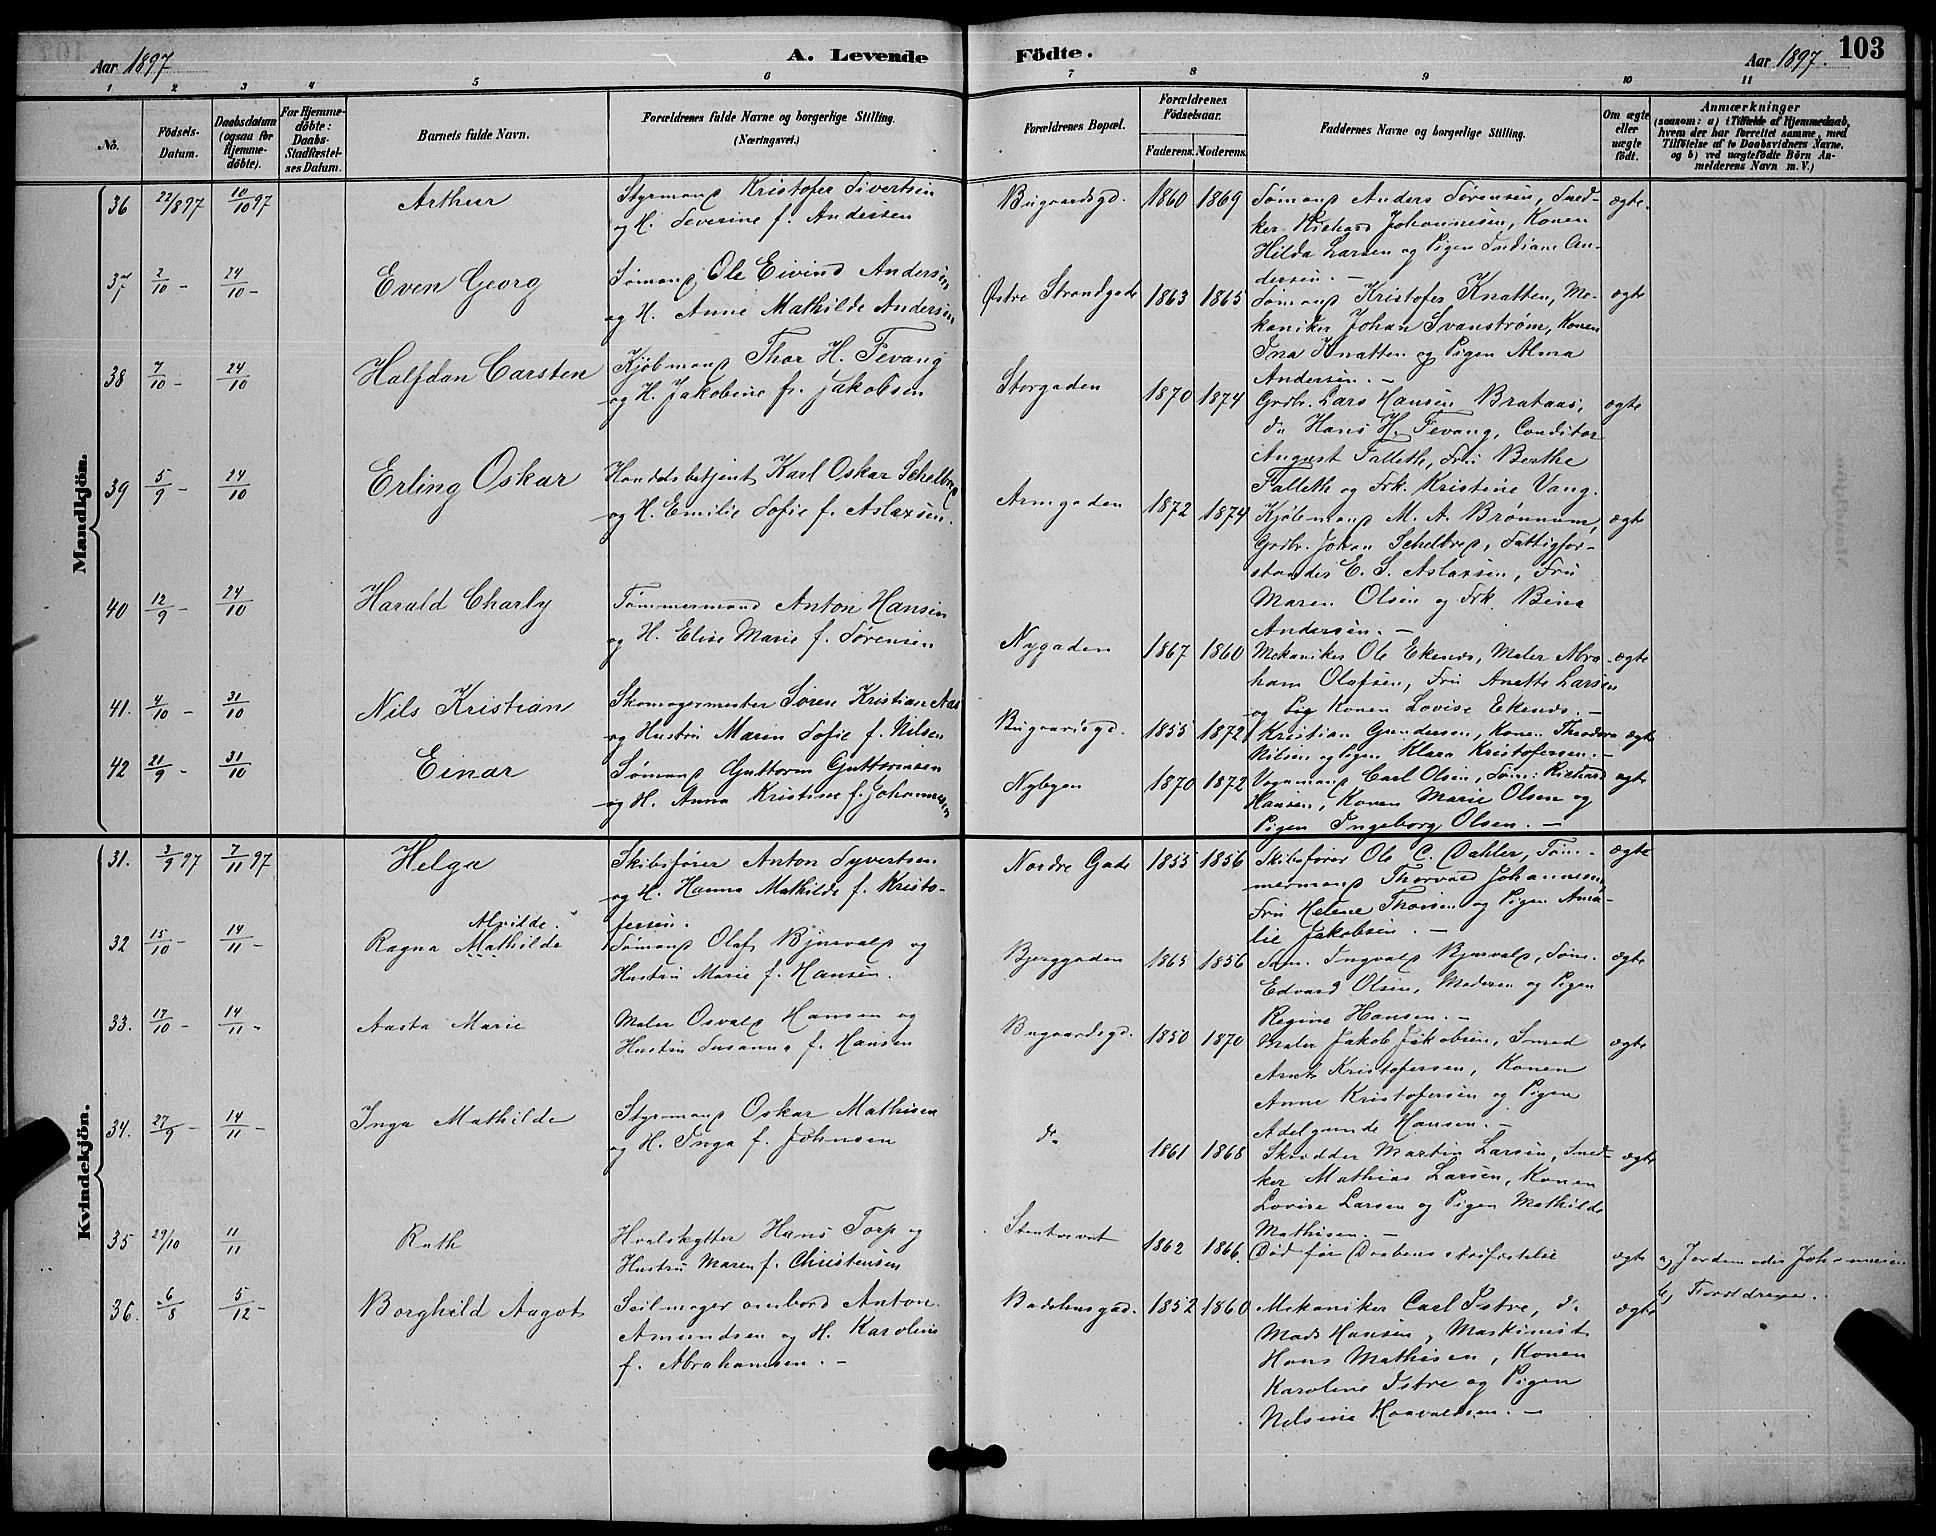 Aar 1897
A. Levende
Födte.
Aar 1897.
103
1 2 3 4 5 6 7 8 9 10 11
No.
Födsels-Datum.
Daabsdatum (ogsaa for Hjemme-döbte).
For Hjemme-döbte: Daabs-Stadfæstel-ses Datum.
Barnets fulde Navn.
Forældrenes fulde Navne og borgerlige Stilling.
(Næringsvei.)
Forældrenes Bopæl.
Forældrenes Födselsaar.
Faderens. Moderens.
Faddernes Navne og borgerlige Stilling.
Om ægte eller uægte födt.
Anmærkninger
(saasom: a) i Tilfælde af Hjemmedaab,
hvem der har forrettet samme, med
Tilföielse af to Daabsvidners Navne,
og b) ved uægtefödte Börn An-
melderens Navn m. V.)
Mandkjön.
36 22/8 97 10/10 97 Arthur
Styrmand Kristofer Sivertsen
og H. Severine f. Andersen
Bugaardsgd. 1860 1869
Sømand Anders Sørensen, Sned-
ker Richard Johannesen, Konen
Hilda Larsen og Pigen Indiane An-
dersen. -
ægte.
37 2/10 - 24/10 - Even Georg
Sømand Ole Eivind Andersen
og H. Anne Mathilde Andersen
Østre Strandgade 1863 1865
Sømand Kristofer Knatten, Me-
kaniker Johan Svanstrøm, Konen
Ina Knatten og Pigen Alma
Andersen. -
ægte
38 7/10 - 24/10 Halfdan Carsten
Kjøbmand Thor H. Fevang
og H. Jakobine f. Jakobsen
Storgaden 1870 1874
Grdbr. Lars Hansen Brataas,
do Hans H. Fevang, Conditor
August Falleth, Fru Berthe
Falleth og Frk. Kristine Vang.
ægte
39 5/9 - 24/10 Erling Oskar
Handelsbetjent Karl Oskar Schelbred
og H. Emilie Sofie f. Aslaxsen.
Armgaden 1872 1874
Kjøbmand M. A. Brønnum,
Grdbr. Johan Schelbred, Fattigfor-
stander E. S. Aslaxsen, Fru
Maren Olsen og Frk. Bina
Andersen. -
ægte
40 12/9 - 24/10 Harald Charly
Tømmermand Anton Hansen
og H. Elise Marie f. Sørensen
Nygaden 1867 1860
Mekaniker Ole Ekenes, Maler Abra-
ham Olafsen, Fru Anette Larsen
og Konen Lovise Ekenes. -
ægte
41. 4/10 - 31/10 Nils Kristian
Skomagermester Søren Kristian Aas
og Hustru Maren Sofie f. Nilsen
Bugaardsgd. 1855 1872
Kristian Gundersen, Konen Theodora
Nilsen og Pigen Klara Kristofersen. -
ægte
42 21/9 - 31/10 Einar
Sømand Guttorm Guttormsen
og H. Anna Kristine f. Johannesen
Nybyen 1870 1872
Vognmand Carl Olsen, Søm: Richard
Hansen, Konen Marie Olsen og
Pigen Ingeborg Olsen. -
ægte
Kvindekjön.
31. 3/9 97 7/11 97 Helga
Skibsfører Anton Syvertsen
og H. Hanna Mathilde f. Kristo-
fersen.
Nordre Gade 1855 1856
Skibsfører Ole C. Dahler, Tøm-
mermand Thorvald Johannesen,
Fru Helene Thorsen og Pigen Ama-
lie Jakobsen. -
ægte
Alvilde.
32 15/10 - 14/11 - Ragna Mathilde
Sømand Olaf Bjnevald og
Hustru Marie f. Hansen.
Bjerggaden 1865 1856
Søm. Ingvald Bjnevald, Søm.
Edvard Olsen, Moderen og Pigen
Regine Hansen. -
ægte
33. 17/10 - 14/11 - Aasta Marie
Maler Osvald Hansen og
Hustru Susanna f. Hansen
Bugaardsgd. 1850 1870
Maler Jakob Jakobsen, Smed
Arnt Kristofersen, Konen
Anne Kristofersen og Pigen
Adelgunde Hansen. -
ægte
34. 27/9 - 14/11 - Inga Mathilde
Styrmand Oskar Mathisen
og H. Inga f. Johnsen
do 1861 1868
Skrædder Martin Larsen, Sned-
ker Mathias Larsen, Konen
Lovise Larsen og Pigen Mathilde
Mathisen. -
ægte
35 29/10 11/11 Ruth
Hvalskytter Hans Torp og
Hustru Maren f. Christensen
1862 1866.
Død før Daabens stadfæstelse
ægte
a) Jordemoder Johannesen
36. 6/8 5/12 - Borghild Aagot
Seilmager ombord Anton
Amundsen og H. Karoline
f. Abrahamsen. -
1852 1860
Mekaniker Carl Istre, do
Mads Hansen, Maskinist
Hans Mathisen, Konen
Karoline Istre og Pigen
Nelsine Haavaldsen. -
ægte